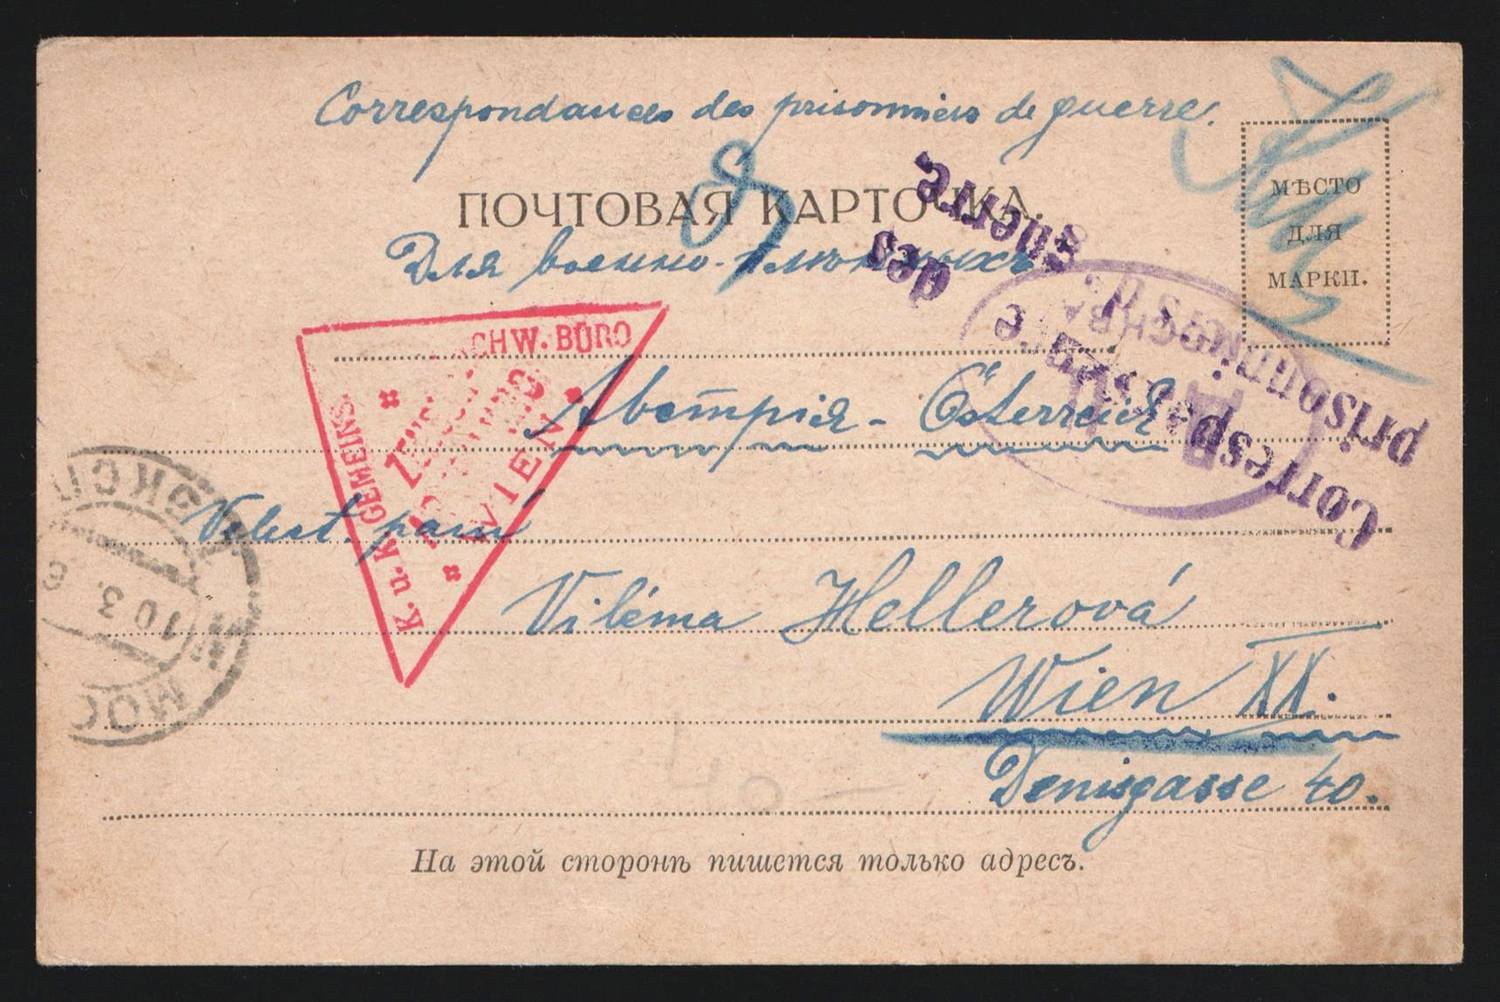 Correspondances des prisonniers de guerre.
ПОЧТОВАЯ КАРТОЧКА.
Для военно-плѣнныхъ
МѢСТО
ДЛЯ
МАРКИ.
Correspondance des
prisonniers de guerre
K. u. K. GEMEINS.
ZENSUR
WIEN
Австрія - Österreich
Velect. paní
Viléma Hellerová
Wien XX.
Denisgasse 40.
МОС
ЭКСП
10 3
40
На этой сторонѣ пишется только адресъ.